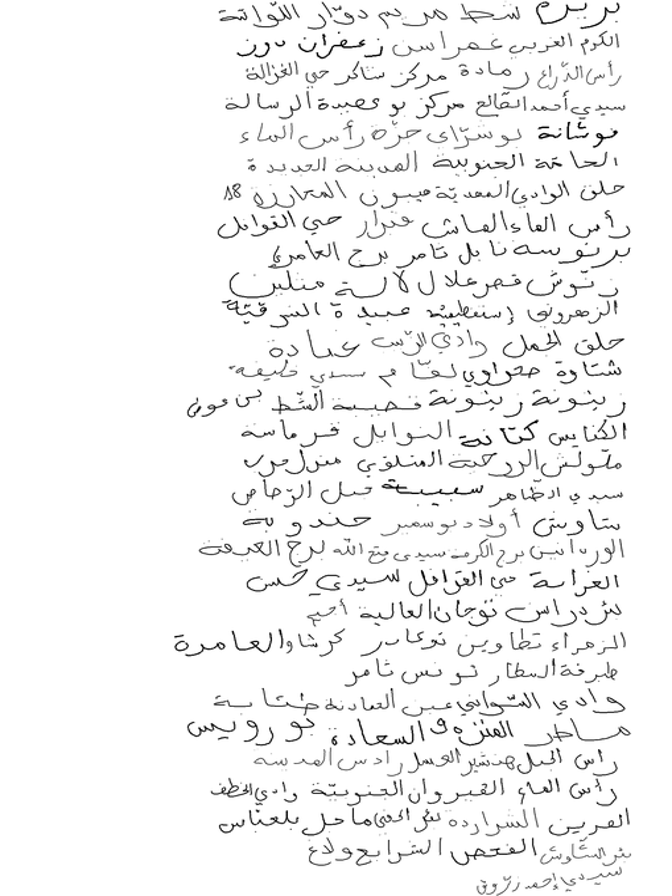 شط مريم دوّار اللواتة
الكرم الغربي غمراسن زعفران دوز
رأس الذراع رمادة مركز شاكر حي الغزالة
سيدي أحمد القالع مركز بو عصيدة الرسالة
فوشانة بوشراي حزة رأس الماء
الحامة الجنوبية المدينة الجديدة
حلق الوادي المعدية ميبون المحارزة 18
رأس الماء الماش منزل حي القوافل
برنوسه نابل ثامر برج العامري
زنوش قصر علال لالة منلين
الزهروني إسنطيفيد عبيدة الشرقية
حلق الجمل وادي الرّسب عبادة
شتاوة صحراوي لقّام سيدي خليفة
زيتونة زيتونة قصيبة الشط بن عون
الكنايس كتانة النوايل قرماسة
ملولش الروحية المتلوي منزل حرب
سيدي الظاهر سبيبة جبل الرّصاص
شاوش أولاد بوسمير جندوبة
الوردانين برج الكرمة سيدي فتح الله برج العيفة
العراسة حي القوافل سيدي حسن
بئر دراس توجان العالية أحيم
الزهراء تطاوين توعادر كرشاو العامرة
طبرقة السطار تونس ثامر
وادي السّواني عين العمادنة ختابة
ماطر المنزه 9 السعادة بورويس
رأس الجبل هنشير العسل رادس المدينة
رأس الماء القيروان الجنوبيّة وادي الخطف
العرين الشراردة بئر الحفي ماجل بلعباس
بئر الشاوش الفحص الشرايع ولاغ
سيدي أحمد زروق